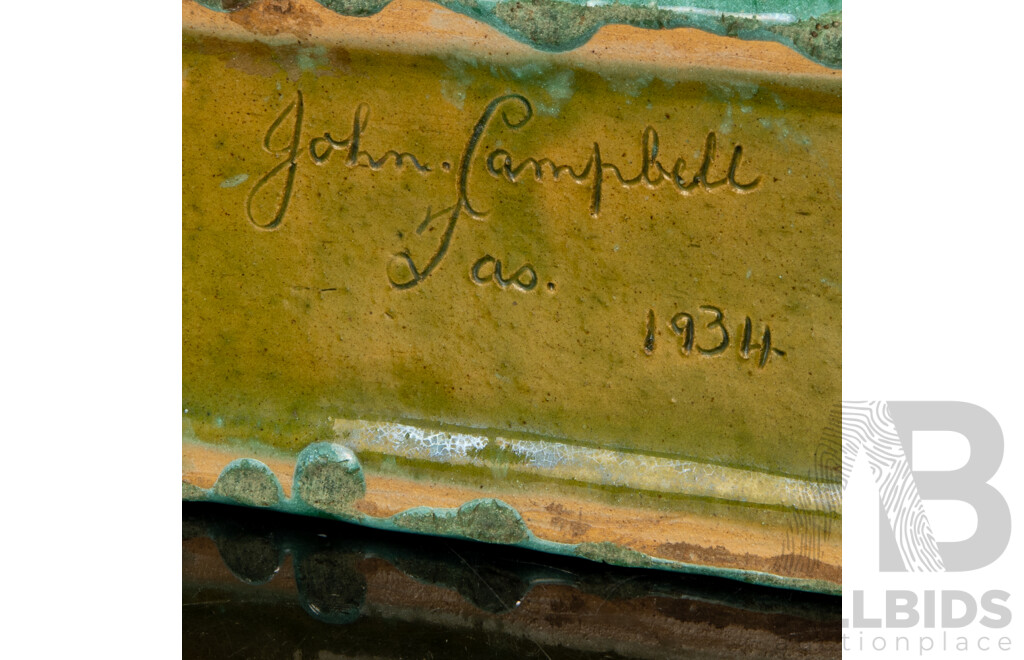 John. Campbell
Tas.
1934
AB
ALLBIDS
auctionplace